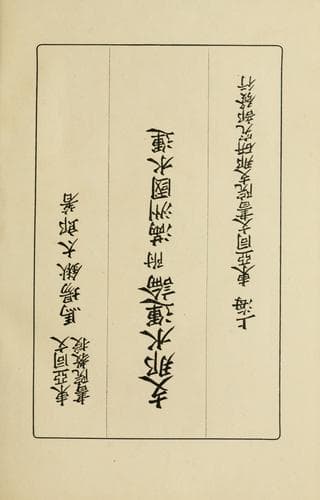 東亞同文
書院教授
馬場鍬太郎著
支那水運論 附滿洲國水運
上海 東亞同文書院支那研究部發行